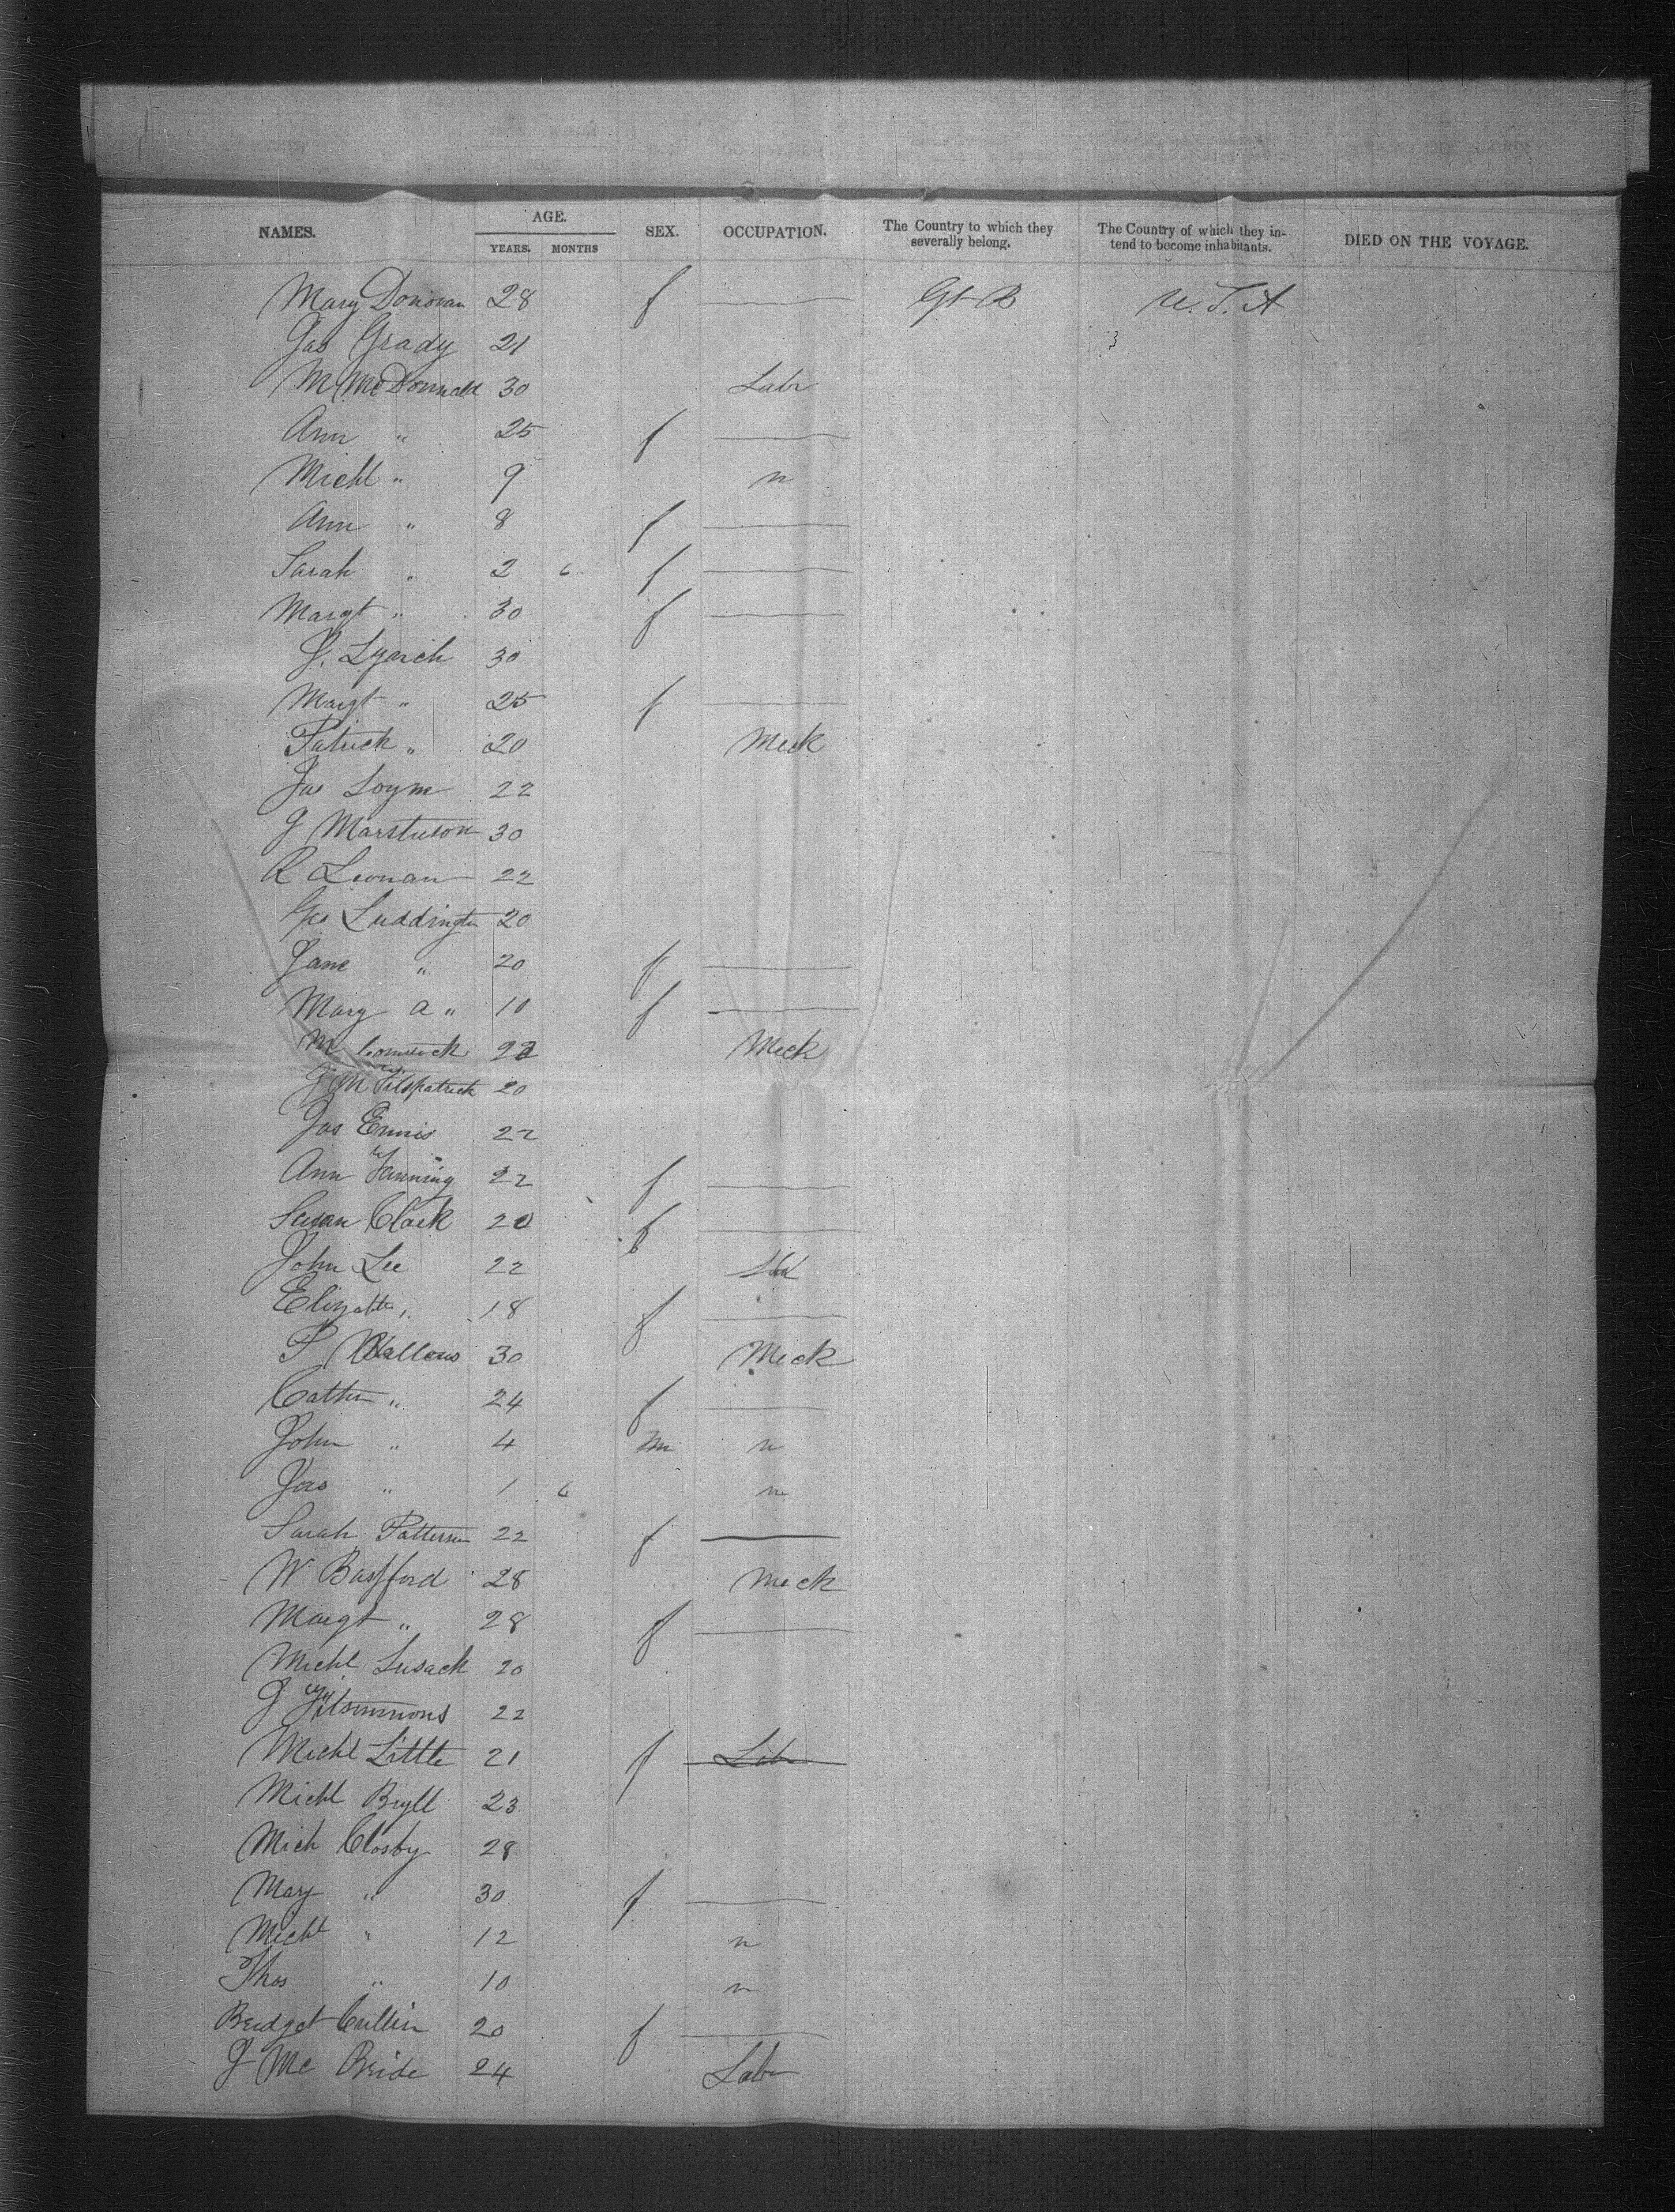 NAMES. AGE. SEX. OCCUPATION. The Country to which they severally belong. The Country of which they intend to become inhabitants. DIED ON THE VOYAGE.
YEARS. MONTHS
Mary Donovan 28 f — Gt B U.S.A
Jas Grady 21
M McDonnald 30 Labr
Ann " 25 f —
Michl " 9 n
Ann " 8 f —
Sarah " 2 6 f —
Margt " 30 f —
J. Lynch 30
Margt " 25 f —
Patrick " 20 Meck
Jas 22
J 30
R 22
Geo Luddington 20
Jane " 20 f —
Mary A " 10 f —
M Comstock Meck
J M Fitspatrick 20
Jas Ennis 22
Ann Fanning 22 f —
Susan Clark 20 f —
John Lee 22
Elizabth " 18 f —
P Wallows 30 Meck
Cathn " 24 f —
John " 4 m n
Jas " 1 6 n
Sarah Patterson 22 f —
W Bassford 28 Meck
Margt " 28 f —
Michl Lusack 20
J Fitsimmons 22
Michl Little 21 f Labr
Michl 23
Mich Closby 28
Mary " 30 f —
Michl " 12 n
Thos " 10 n
Bridget Cullin 20 f —
J Mc Bride 24 Labr